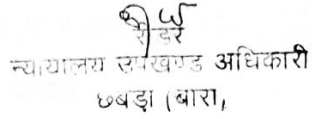 रीडर
न्यायालय उपखण्ड अधिकारी
छबड़ा (बारा,